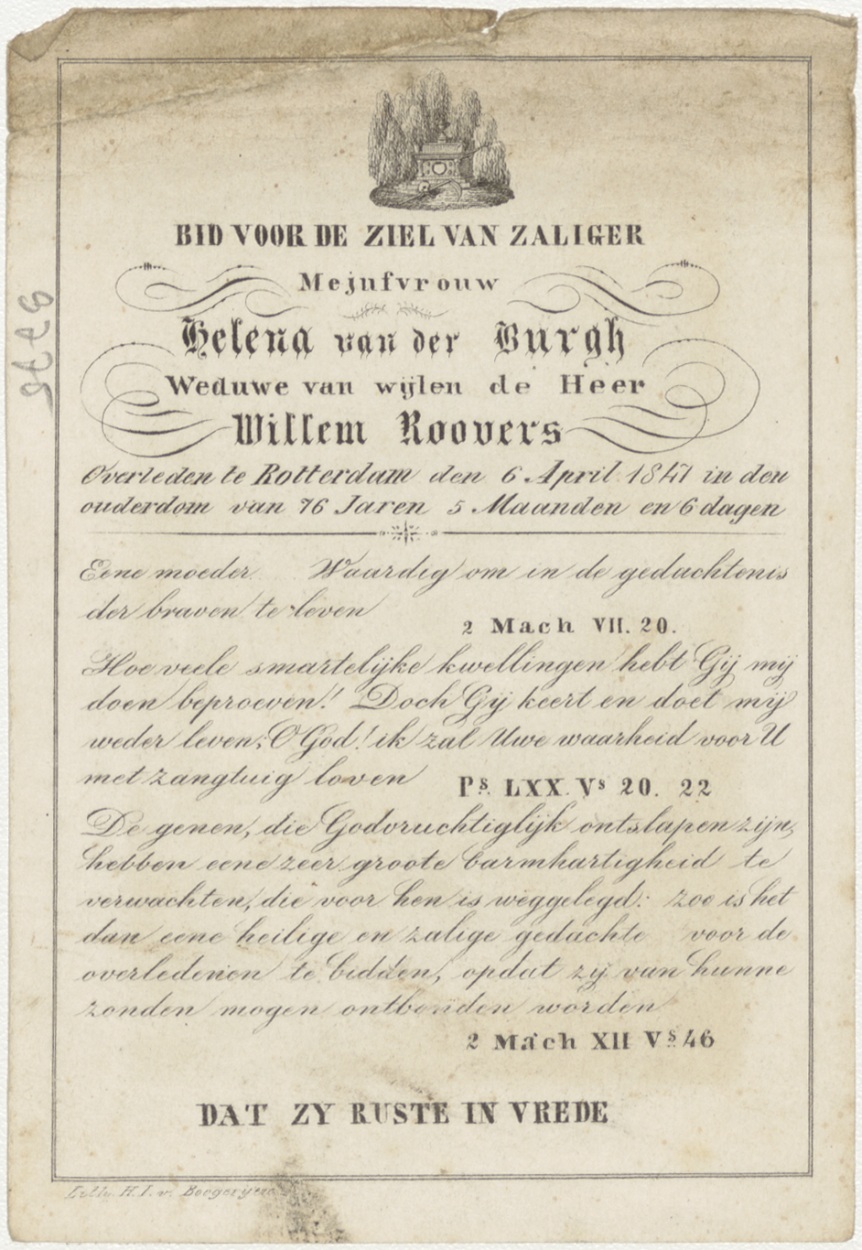 BID VOOR DE ZIEL VAN ZALIGER
Mejufvrouw
Helena van der Burgh
Weduwe van wijlen de Heer
Willem Roovers
Overleden te Rotterdam den 6 April 1847 in den
ouderdom van 76 Jaren 5 Maanden en 6 dagen
Eene moeder Waardig om in de gedachtenis
der braven te leven
2 Mach VII. 20.
Hoe veele smartelijke kwellingen hebt Gij mij
doen beproeven! Doch Gij keert en doet mij
weder leven; O God! ik zal Uwe waarheid voor U
met zangtuig loven
Ps LXX Vs 20. 22
De genen, die Godvruchtiglijk ontslapen zijn,
hebben eene zeer groote barmhartigheid te
verwachten, die voor hen is weggelegd: zoo is het
dan eene heilige en zalige gedachte voor de
overledenen te bidden, opdat zij van hunne
zonden mogen ontbonden worden
2 Mach XII Vs 46
DAT ZY RUSTE IN VREDE
Lith. H. I. v.